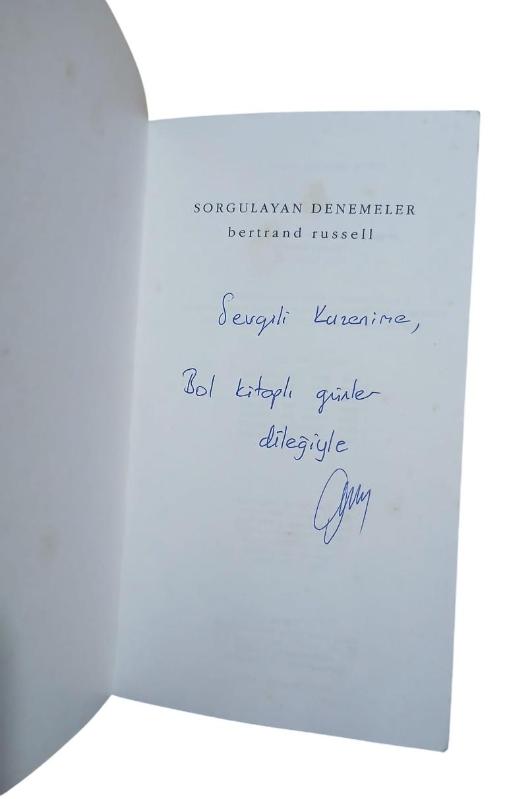 SORGULAYAN DENEMELER
bertrand russell
Sevgili Kuzenime,
Bol kitaplı günler
dileğiyle